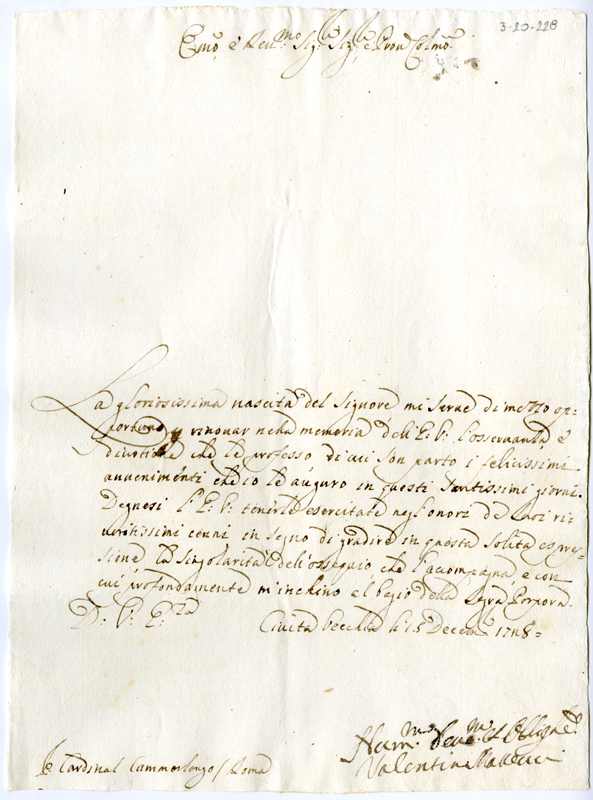 3-20-228
Emo, e Reu.mo Sig.r Sig.r e Pron Colmo.
La gloriosissima nascita del Signore mi serue di mezzo op=
portuno p rinouar nella memoria dell'E: V: l'osseruanza, e
diuotione che le professo di cui son parto i felicissimi
auuenimenti che io le auguro in questi Santissimi giorni.
Degnesi l'E: V: tenerle esercitate negl'onori de suoi ri=
ueritissimi cenni in segno di gradire in questa solita espres=
sione la singolarità dell'ossequio che l'accompagna, e con
cui profondamente m'inchino al bagio della Sagra Porpora.
D: V: E:za
Ciuita Vecchia li 15 Decem 1728=
Hum.mo Deu.mo et Obligmo
Valentino
Cardinal Camerlengo / Roma